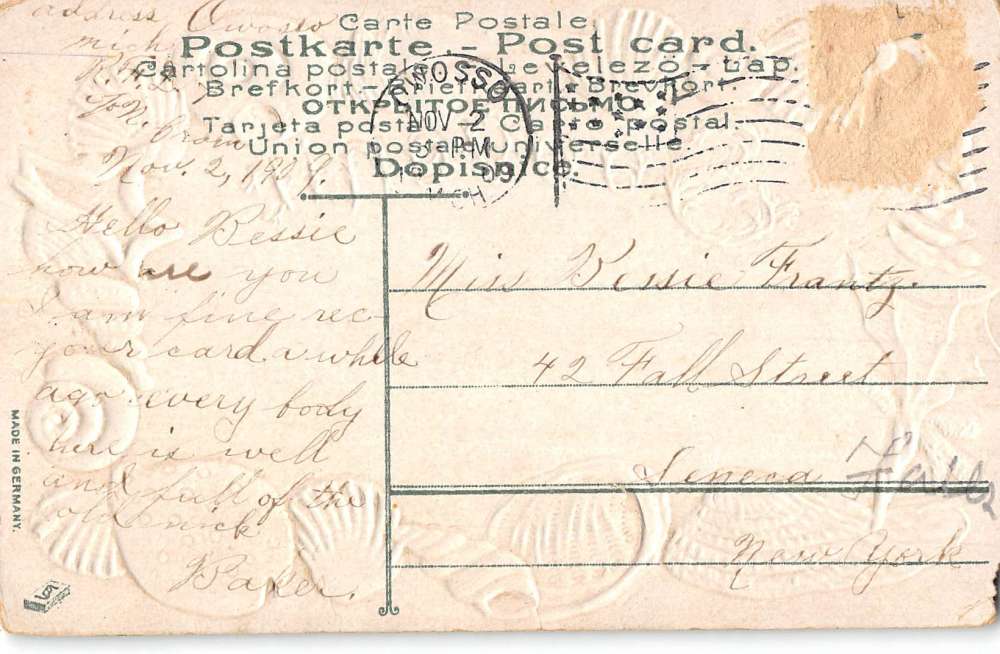 address Owosso
mich
Carte Postale.
Postkarte - Post card.
Cartolina postale - Levelezö-Lap.
Brefkort - Briefkaart - Brevkort.
ОТКРЫТОЕ ПИСЬМО
Tarjeta postal - Carte postal.
Union postale universelle.
Dopisnice.
OWOSSO
NOV 2
PM
MICH
from
Nov. 2, 1909.
Hello Bessie
how are you
I am fine rec
your card a while
ago every body
here is well
and full of the
old nick
Baker.
Miss Bessie Frantz.
42 Fall Street
Seneca Falls
New York
MADE IN GERMANY.